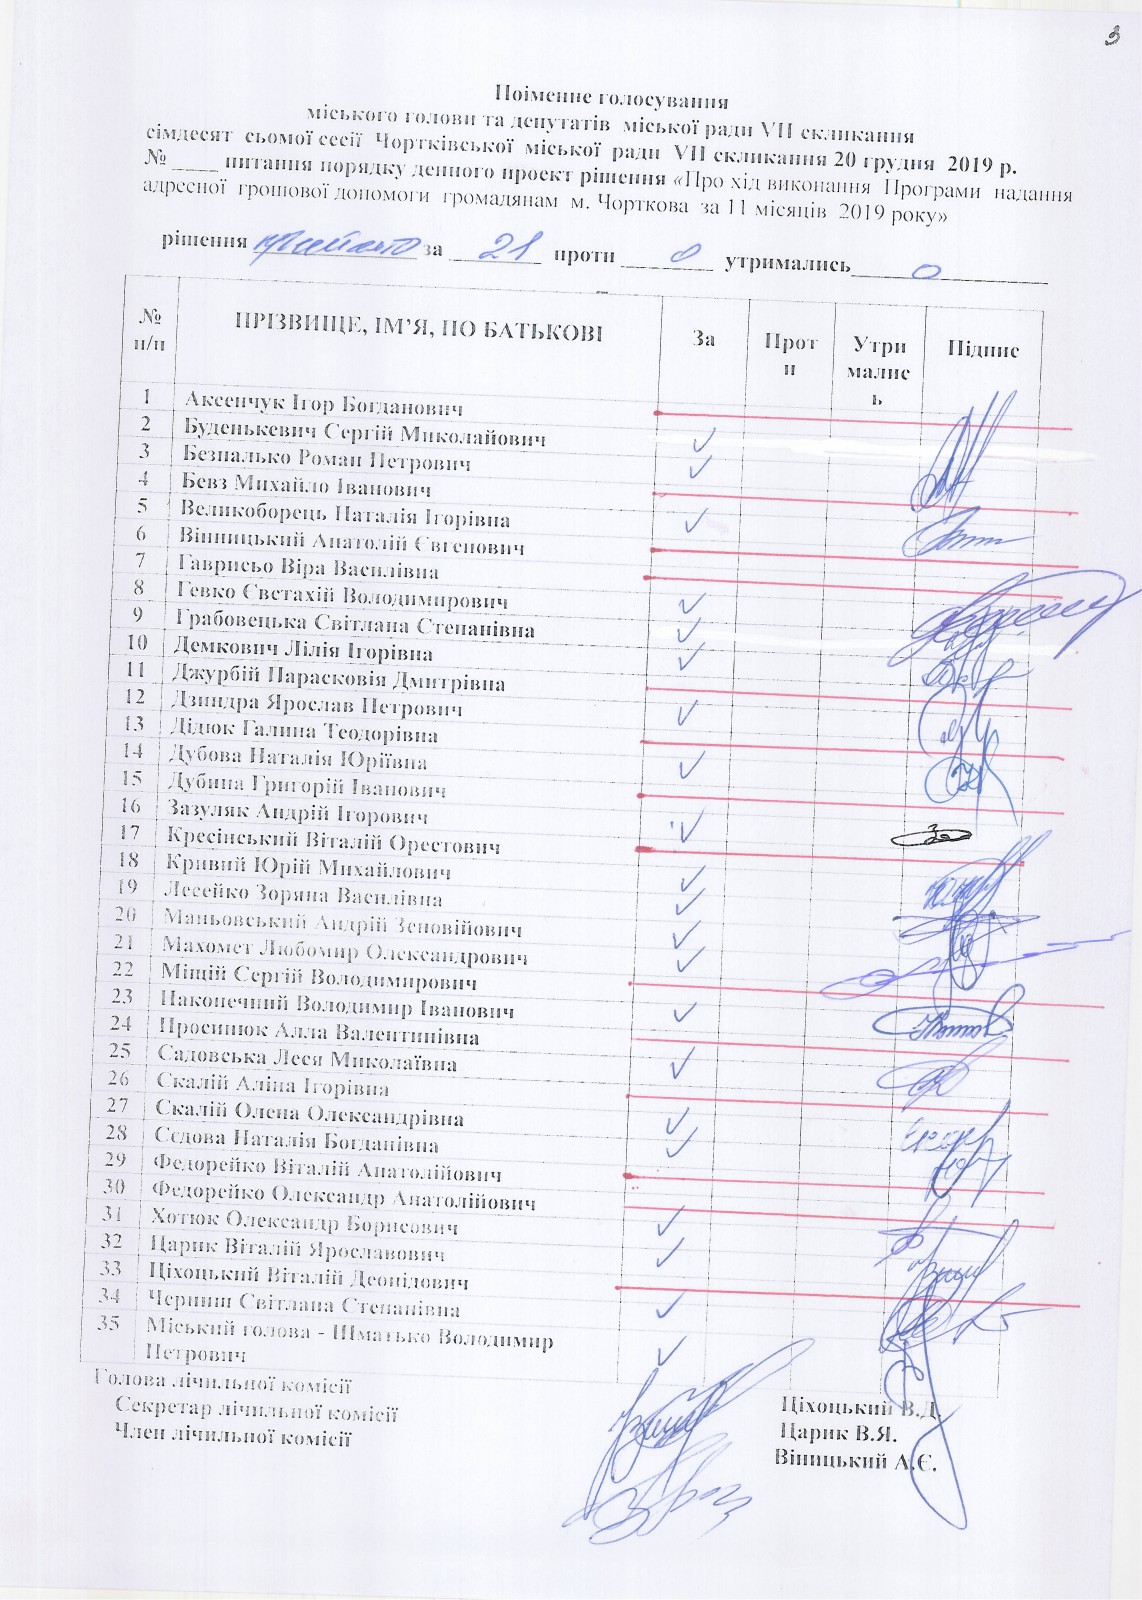 3
Поіменне голосування
міського голови та депутатів міської ради VII скликання
сімдесят сьомої сесії Чортківської міської ради VII скликання 20 грудня 2019 р.
№ ____ питання порядку денного проект рішення «Про хід виконання Програми надання
адресної грошової допомоги громадянам м. Чорткова за 11 місяців 2019 року»
рішення прийнято за 21 проти 0 утримались 0
№ п/п ПРІЗВИЩЕ, ІМ’Я, ПО БАТЬКОВІ За Проти Утримались Підпис
1 Аксенчук Ігор Богданович
2 Буденькевич Сергій Миколайович
3 Безпалько Роман Петрович
4 Бевз Михайло Іванович
5 Великоборець Наталія Ігорівна
6 Вінницький Анатолій Євгенович
7 Гаврисьо Віра Василівна
8 Гевко Євстахій Володимирович
9 Грабовецька Світлана Степанівна
10 Демкович Лілія Ігорівна
11 Джурбій Парасковія Дмитрівна
12 Дзиндра Ярослав Петрович
13 Дідюк Галина Теодорівна
14 Дубова Наталія Юріївна
15 Дубина Григорій Іванович
16 Зазуляк Андрій Ігорович
17 Кресінський Віталій Орестович
18 Кривий Юрій Михайлович
19 Лесейко Зоряна Василівна
20 Маньовський Андрій Зеновійович
21 Махомет Любомир Олександрович
22 Міщій Сергій Володимирович
23 Наконечний Володимир Іванович
24 Просинюк Алла Валентинівна
25 Садовська Леся Миколаївна
26 Скалій Аліна Ігорівна
27 Скалій Олена Олександрівна
28 Сєдова Наталія Богданівна
29 Федорейко Віталій Анатолійович
30 Федорейко Олександр Анатолійович
31 Хотюк Олександр Борисович
32 Царик Віталій Ярославович
33 Ціхоцький Віталій Деонідович
34 Чернин Світлана Степанівна
35 Міський голова - Шматько Володимир
Петрович
Голова лічильної комісії Ціхоцький В.Д.
Секретар лічильної комісії Царик В.Я.
Член лічильної комісії Вінницький А.Є.